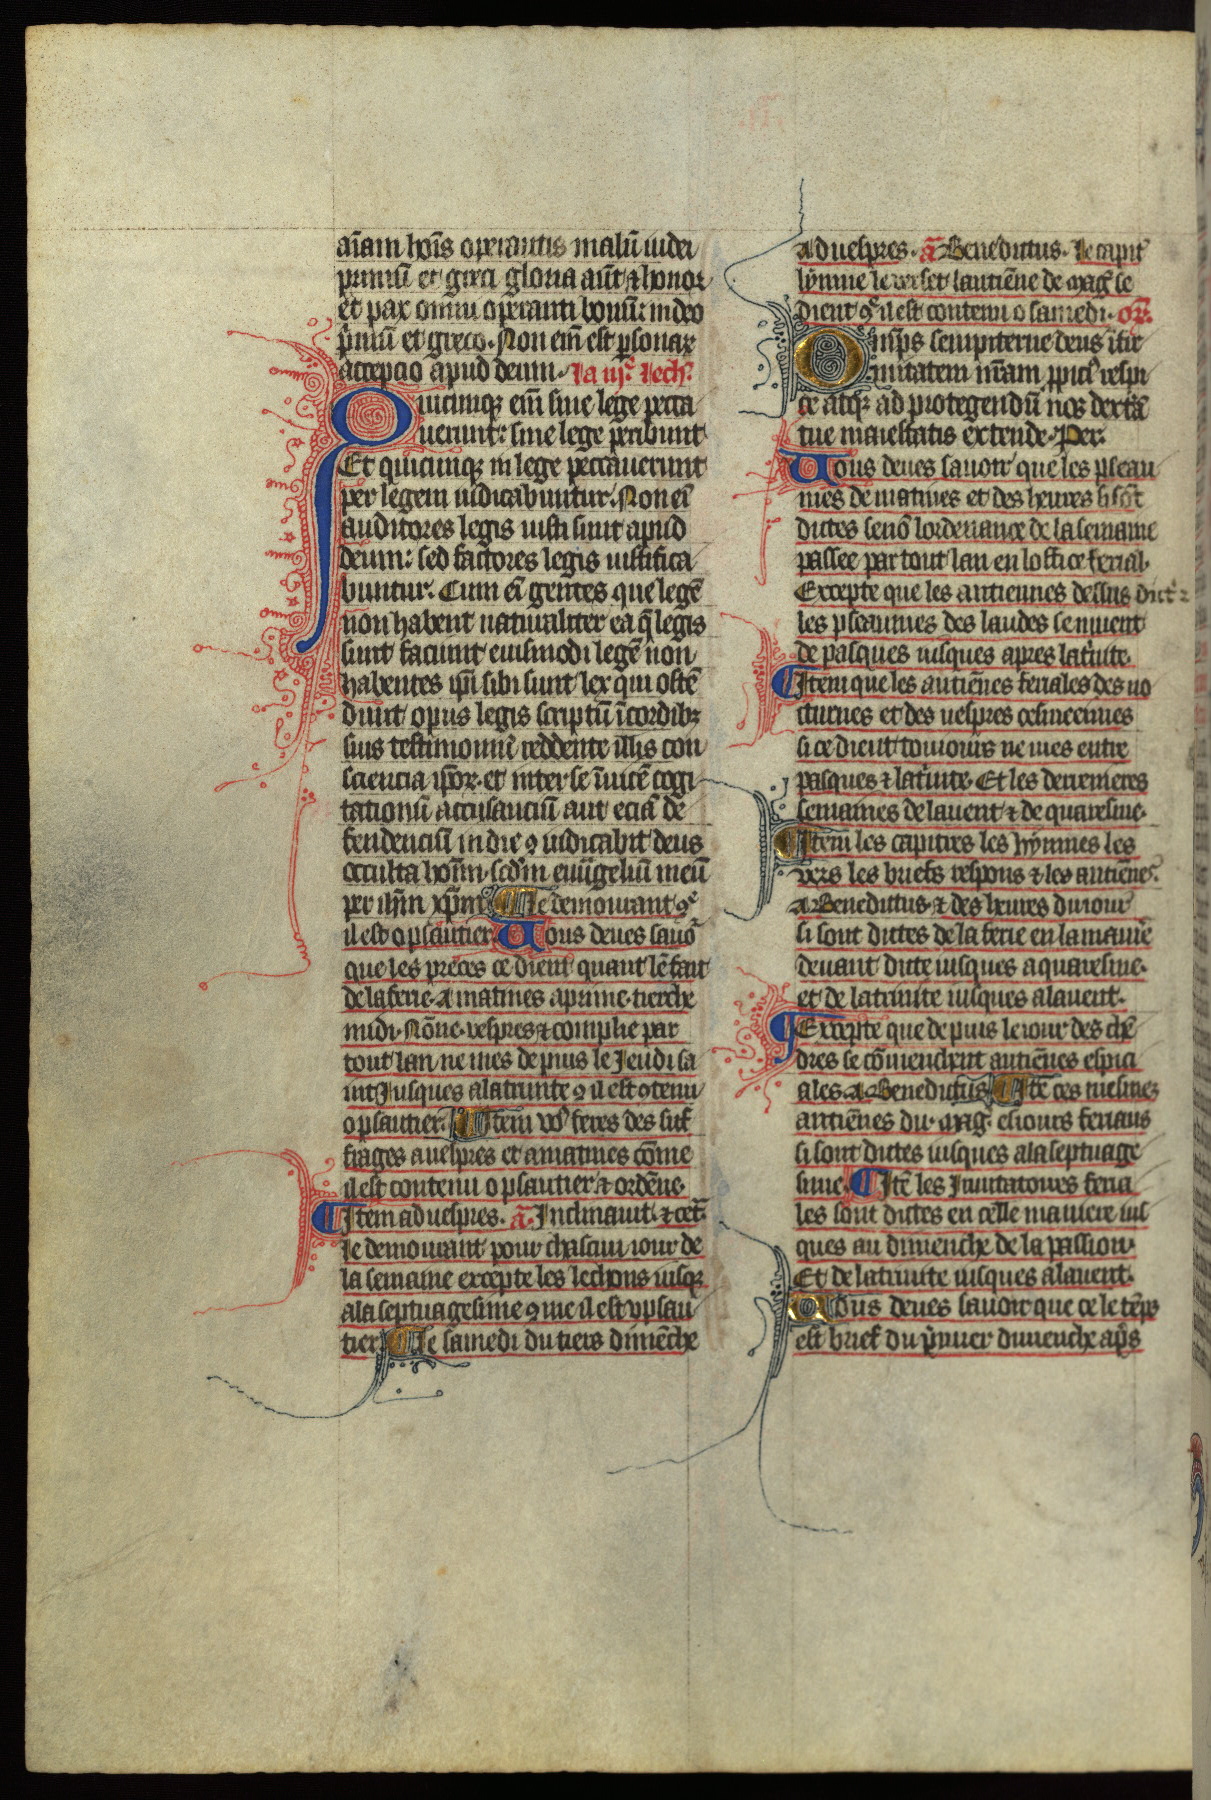 aīam hoīs operantis malū iudei
primū et greci gloria aūt ⁊ honor
et pax omni operanti bonū: iudeo
p̄mū et greco. Non em̄ est ꝑsonar̄
accepcio apud deum. La iijᵉ. lech.
Quicunqꝫ em̄ sine lege pecca
uerunt: sine lege peribunt
Et quicunqꝫ in lege peccauerunt
per legem iudicabuntur. Non eī
auditores legis iusti sunt apud
deum: sed factores legis iustifica
buntur. Cum eī gentes que legē
non habent naturaliter ea q̄ legis
sunt faciunt eiusmodi legē non
habentes ip̄i sibi sunt lex qui ostē
dunt opus legis scriptū ī cordibꝫ
suis testimoniū reddente illis con
sciencia ip̄oꝝ. et inter se īuicē cogi
tationū accusanciū aut eciā de
fendenciū in die ꝯ iudicabit deus
occulta hoīm. scd̄m euūgeliū meū
per ih̄m xp̄m. ¶ Le demourant ꝯᵉ
il est o psautier. Uous deues sauoʳ
que les preces ce dient quant lē fait
de la ferie. A matines a prime. tierche
midi. Nōne. vespres ⁊ complie par
tout lan. ne mes de puis le Jeudi sa
int Jusques a la trinite ꝯ il est ꝯtenu
o psautier. ¶ Item voˢ feres des suf
frages a uespres et a matines cōme
il est contenu o psautier ⁊ ordēne.
¶ Item ad uespres. a᷎. Inclinauit. ⁊ cet̄.
le demourant pour chascun iour de
la semaine excepte les lechons iusqꝫ
a la septuagesime ꝯme il est o psau
tier ¶ Le samedi du tiers dimēche
Ad uespres. ā Benedictus. le capit̄
lymne le verset lantiēne de maḡ. se
dient ꝯᵉ il est contenu o samedi. or̄.
Omp̄s sempiterne deus īfir
mitatem nr̄am ꝓpiciˢ respi
ce atqꝫ ad protegendū nos dextā
tue maiestatis extende. Per.
Uous deues sauoir que les pseau
mes de matines et des heures si sōt
dictes senō lordenance de la semaine
passee par tout lan en loffice ferial.
Excepte que les antiennes dessus dictᵉˢ
les pseaumes des laudes se muent
de pasques iusques apres la t̄nite.
¶ Item que les antiēnes feriales des no
cturnes et des uespres cesinceines
si ce dient touiours ne mes entre
pasques ⁊ la t̄nite. Et les derrenieres
semaines de lauent ⁊ de quaresme.
¶ Item les capitres les hymnes les
vers les briefs respons ⁊ les antiēneˢ.
A Benedictus ⁊ des heures du iour
si sont dictes de la ferie en la maniē
deuant dicte iusques a quaresme.
et de la trinite iusques a lauent.
¶ Excepte que de puis le iour des chē
dres se cōmenchent antiēnes espici
ales. A Benedictus ¶ Itē ces mesmeꝫ
antiēnes du. mag. es iours feriaus
si sont dictes iusques a la septuage
sime. ¶ Itē les Inuitatoires feria
les sont dictes en celle maniere ius
ques au dimenche de la passion.
Et de la trinite iusques a lauent.
Uous deues sauoir que ce le tēps
est brief du p̄mier dimenche ap̄s